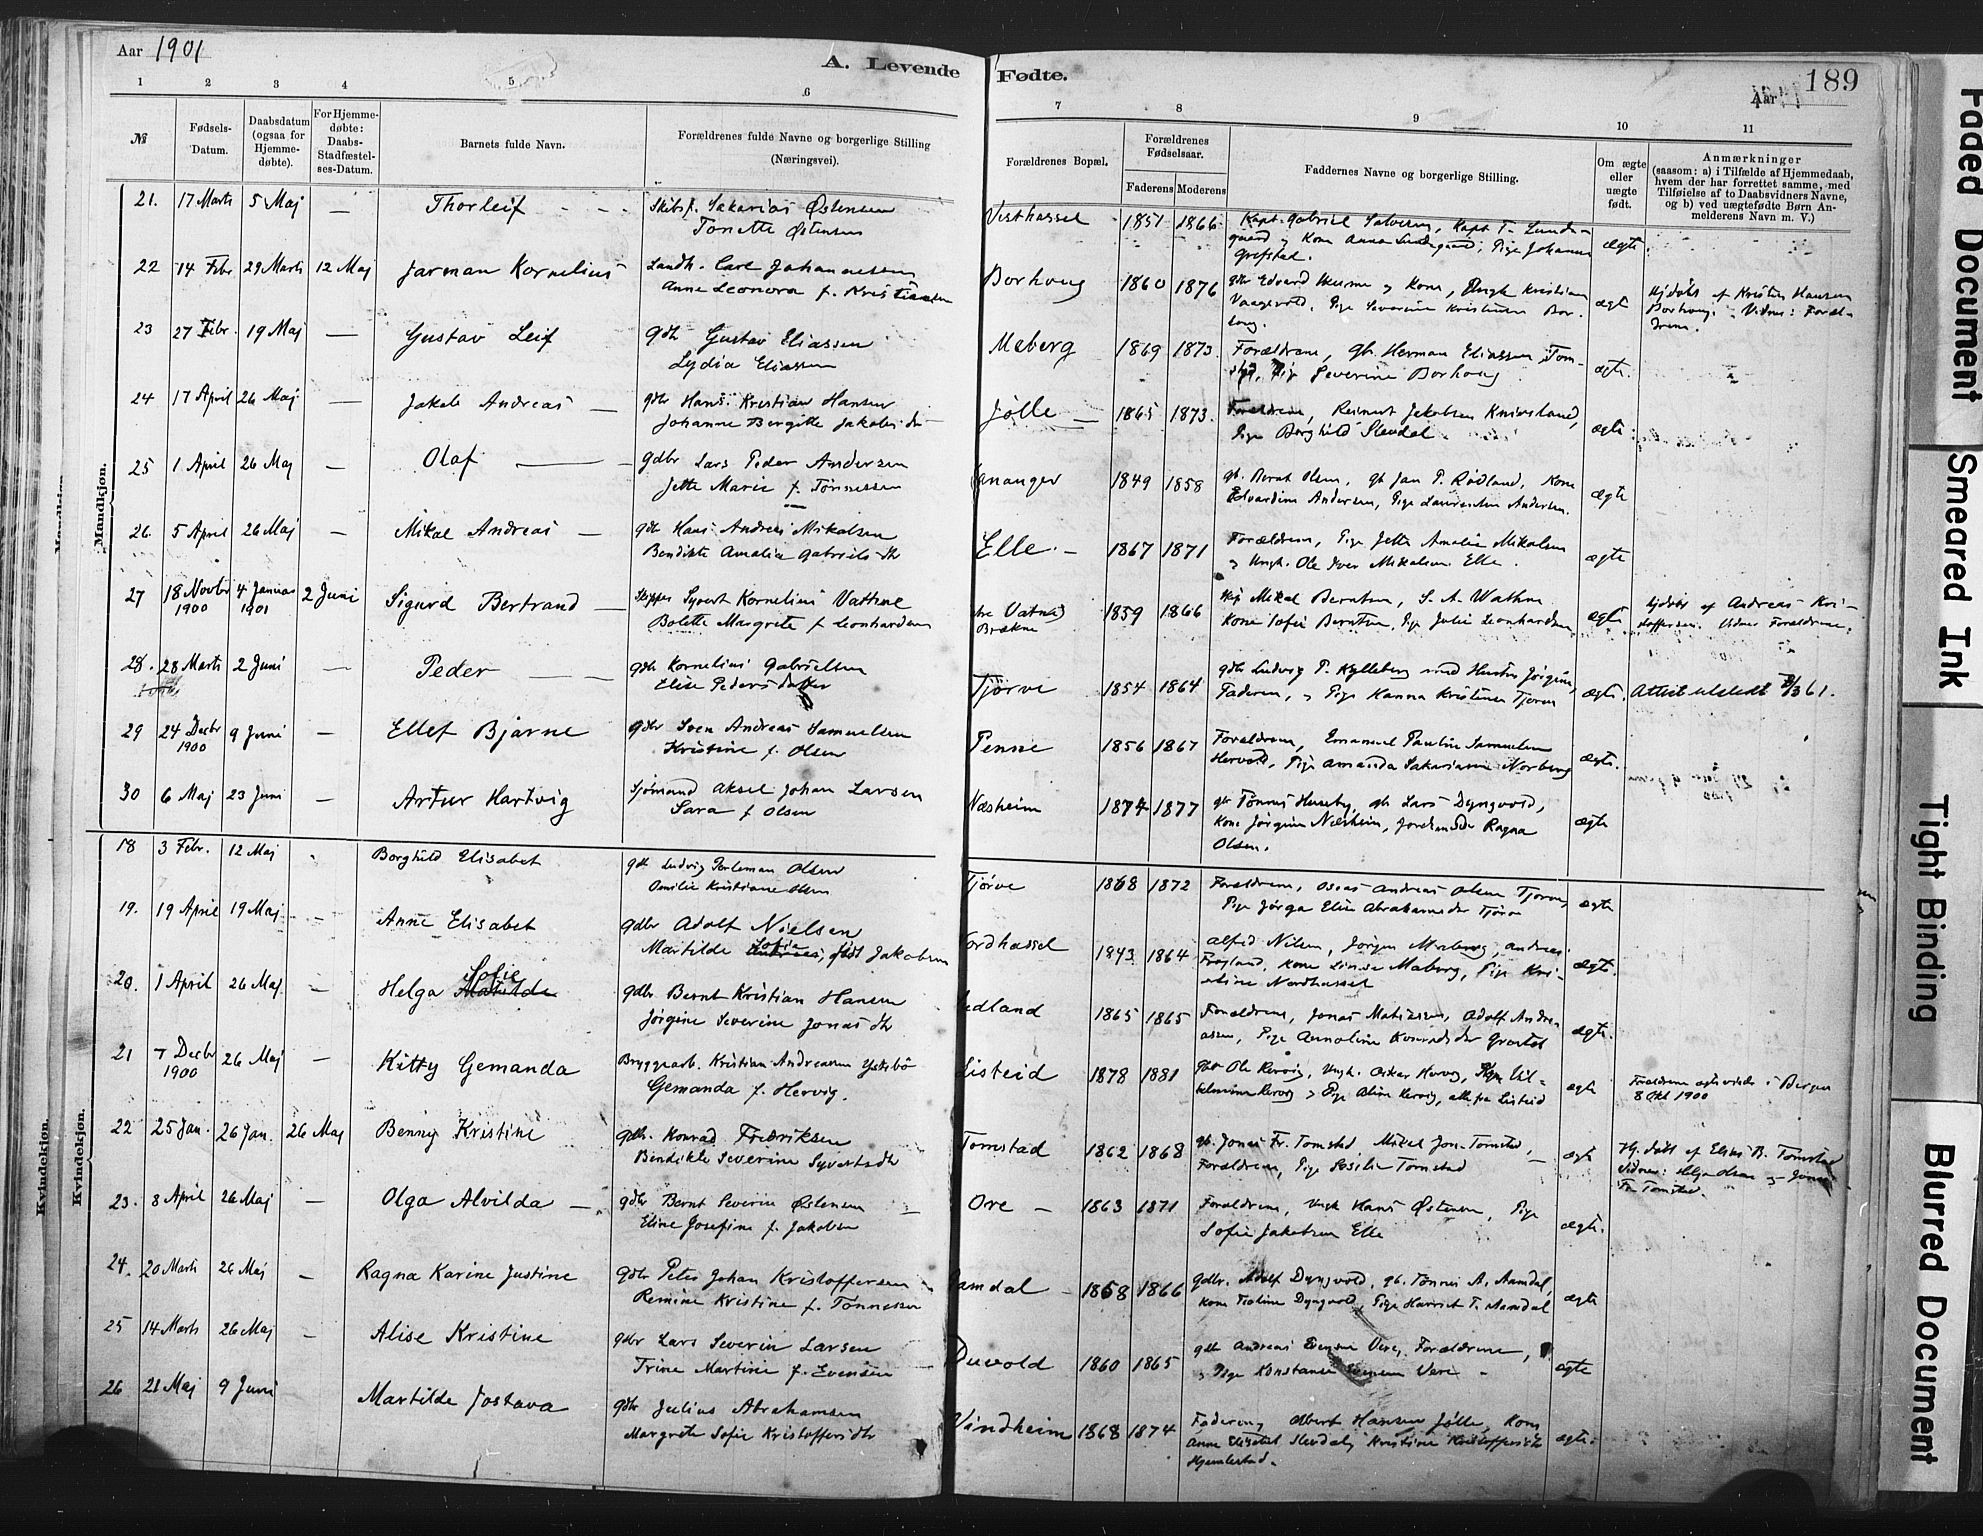 Aar 1901
A. Levende Fødte.
189
Aar
1 2 3 4 5 6 7 8 9 10 11
№
Fødsels-Datum.
Daabsdatum (ogsaa for Hjemme-døbte).
For Hjemme-døbte: Daabs-Stadfæstel-ses-Datum.
Barnets fulde Navn.
Forældrenes fulde Navne og borgerlige Stilling (Næringsvei).
Forældrenes Bopæl.
Forældrenes Fødselsaar.
Faderens Moderens
Faddernes Navne og borgerlige Stilling.
Om ægte eller uægte født.
Anmærkninger (saasom: a) i Tilfælde af Hjemmedaab, hvem der har forrettet samme, med Tilføielse af to Daabsvidners Navne, og b) ved uægtefødte Børn An-melderens Navn m. V.)
Mandkjøn.
21. 17 Marts 5 Maj — Thorleif Sakarias Østensen Vesthassel 1857 1866 Kapt. Gabriel Salvesen, Kapt T. Lunde-
Tonette Østensen gaard og Kone Anna Lundegaard; Pige Johanne ægte
Grefstad.
22 14 Febr 29 Marts 12 Maj Jarman Kornelius Landh. Carl Johannessen Borhoug 1860 1876 Kone, Ungk Kristian ægte Hjdøbt af Kristen Hansen
Anne Leonora f. Kristiansen Pige Severine Kristensen Bor- Borhoug. Vidner: Foræl-
houg. drene.
23 27 Febr. 19 Maj — Gustav Leif gdbr Gustav Eliassen Meberg 1869 1873. Forældrene, gb. Herman Eliassen Tom- ægte.
Lydia Eliassen stad, Pige Severine Borhoug
24 17 April 26 Maj Jakob Andreas — gdbr Hans Kristian Hansen Jølle — 1865 1873. Forældrene, Reinert Jakobsen Knivsland, ægte
Johanne Bergitte Jakobsdr Pige Borghild Slevdal
25 1 April 26 Maj — Olaf — gdbr Lars Peder Andersen 1849 1858 gb. Bernt Olsen, gb Jan P. Rødland, Kone ægte
Jette Marie f. Tønnessen Edvardine Andersen, Pige Andersen.
26. 5 April 26 Maj — Mikal Andreas — gdbr Hans Andreas Mikalsen Elle. — 1867 1871 Forældrene, Pige Jette Amalie Mikalsen ægte
Bendikte Amalia Gabriels dtr og Ungk. Ole Iver Mikalsen Elle.
27 18 Novbr 1900 4 Januar 1901 2 Juni Sigurd Bertrand — Skipper Syvert Kornelius Vattne 1859 1866 Mikal Berntsen, S. A. Wathne ægte Hjdøbt af Andreas Kri-
Bolette Margrete f Leonhardsen Brækne Kone Sofie Berntsen, Pige Julie Leonhardsen stoffersen. Vidner Forældrene.
28. 28 Marts 2 Juni — Peder — gdbr Kornelius Gabrielsen Tjørve 1854 1864 gdbr Ludvig P. Kylleberg med Hustru Jørgine, ægte. Attest utstedt /3 61.
Elise Pedersdatter Faderen, og Pige Hanna Kristense Tjørve
29 24 Decbr 1900 9 Juni — Ellef Bjarne gdbr Sven Andreas Samuelsen Penne 1856 1867 Forældrene, Emanuel Paulin Samuelsen ægte.
Kristine f. Olsen Pige Amanda Sakariasen Norberg
30 6 Maj 23 Juni — Artur Hartvig Sjømand Aksel Johan Larsen Næsheim 1874 1877 gb Tønnes Huseby, gb Lars Dyngvold, ægte
Sara f Olsen Kone Jørgine Næsheim, Ragna
Olsen.
Kvindekjøn.
18 3 Febr. 12 Maj Borghild Elisabet gdbr Ludvig Olsen Tjørve 1868 1872 Forældrene, Oseas Andreas Olsen Tjørve, ægte
Emilie Kristiane Olsen Pige Jørga Elise Abrahamsdr Tjørve
19. 19 April 19 Maj — Anne Elisabet gdbr Adolf Nielsen Nordhassel 1843 1864 Alfed Nilsen, Jørgen Meberg, Andreas ægte.
Martilde Sofie, født Jakobsen Kone Meberg, Pige Kri-
stine Nordhassel
20. 1 April 26 Maj — Helga Matilde Sofie gdbr Bernt Kristian Hansen 1865 1865 Forældrene, Jonas Matissen, Adolf Andre- ægte.
Jørgine Severine Jonasdtr assen, Pige Annoline Konradsdr
21 7 Decbr 1900 26 Maj — Kitty Gemanda Bryggearb. Kristian Andreassen Ystebø Listeid 1878 1881 Ole Hervig, Ungk. Oskar Hervig, Vil- ægte Forældrene ægteviede i Bergen
Gemanda f. Hervig. helmine Hervig og Pige Aline Hervig, alle fra Listeid 8 Okt 1900
22 25 Jan. 26 Jan. 26 Maj Benny Kristine gdbr. Konrad Fredriksen Tomstad 1862 1868 gb. Jonas Fr. Tomstad, Mikal Jon. Tomstad, — ægte Hj. døbt af Elias B. Tomstad
Bendikte Severine Syvertsdtr Forældrene, Pige Sesilie Tomstad Vidner: Helga Olsen og Jonas
Fr. Tomstad.
23. 8 April 26 Maj — Olga Alvilda — gdbr Bernt Severin Østensen — Ore — 1863 1871 Forældrene, Ungk Hans Østensen, Pige ægte.
Eline Josefine f. Jakobsen Sofie Jakobsen Elle
24. 20 Marts 26 Maj — Ragna Karine Justine gdbr Peter Johan Kristoffersen Aamdal — 1868 1866 gdbr. Adolf Dyngvold, gb. Tønnes A. Aamdal, ægte
Remine Kristine f. Tønnessen Kone Dyngvold, Pige Harriet T. Aamdal
25 14 Marts 26 Maj — Alise Kristine gdbr Lars Severin Larsen 1860 1865 gdbr Andreas Evensen Vere, Forældrene, ægte
Trine Martine f. Evensen og Pige Konstance Evensen Vere
26 21 Maj 9 Juni Martilde Jostava gdbr Julius Abrahamsen Vindheim 1868 1874 Faderen, Albert Hansen Jølle, Kone ægte.
Margrete Sofie Kristoffersdtr Anne Elisabet Slevdal, Kristine Kristoffersdtr
Mandkjøn.
Kvindekjøn.
Faded Document
Smeared Ink
Tight Binding
Blurred Document